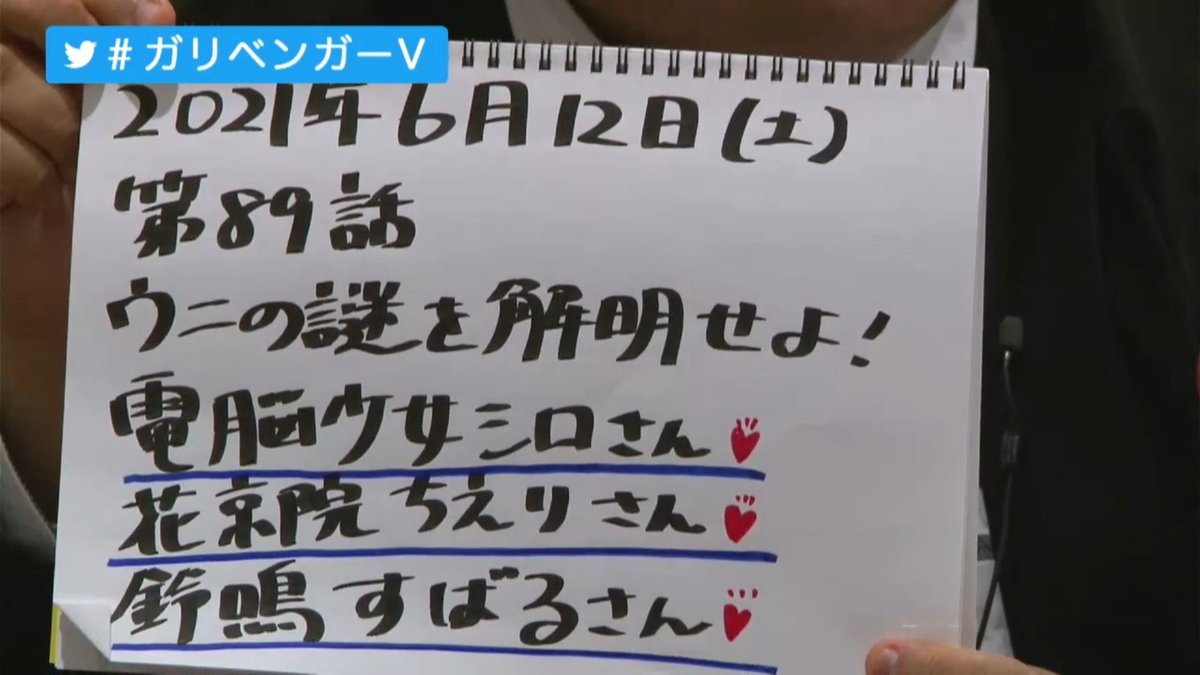 #ガリベンガーV
2021年6月12日(土)
第89話
ウニの謎を解明せよ!
電脳少女シロさん
花京院ちえりさん
鈴鳴すばるさん